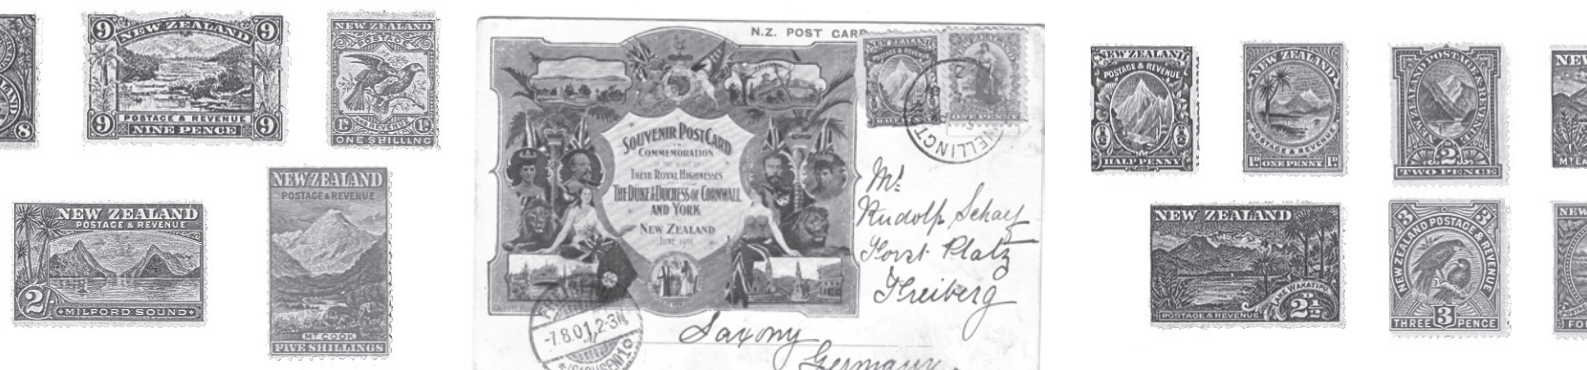 8
9 NEW ZEALAND 9
POSTAGE & REVENUE
9 NINE PENCE 9
NEW ZEALAND
POSTAGE
AND REVENUE
1s 1s
ONE SHILLING
NEW ZEALAND
POSTAGE & REVENUE
2/-
MILFORD SOUND
NEW ZEALAND
POSTAGE & REVENUE
MT COOK
FIVE SHILLINGS
N.Z. POST CARD
SOUVENIR POST CARD
IN
COMMEMORATION
OF
THEIR ROYAL HIGHNESSES
THE DUKE & DUCHESS OF CORNWALL
AND YORK
NEW ZEALAND
JUNE 1901
NEW ZEALAND
POSTAGE & REVENUE
HALF PENNY
ONE PENNY
WELLINGT
Mr.
Rudolf Scharf
Forst Platz
Freiberg
Saxony
Germany
-7.8.01, 2-3N.
NEW ZEALAND
POSTAGE & REVENUE
HALF PENNY
NEW ZEALAND
POSTAGE & REVENUE
1D ONE PENNY 1D
NEW ZEALAND POSTAGE & REVENUE
2
TWO PENCE
NEW
NEW ZEALAND
LAKE WAKATIPU
POSTAGE & REVENUE
2½D
3 3
NEW ZEALAND POSTAGE & REVENUE
THREE 3 PENCE
NEW
FO